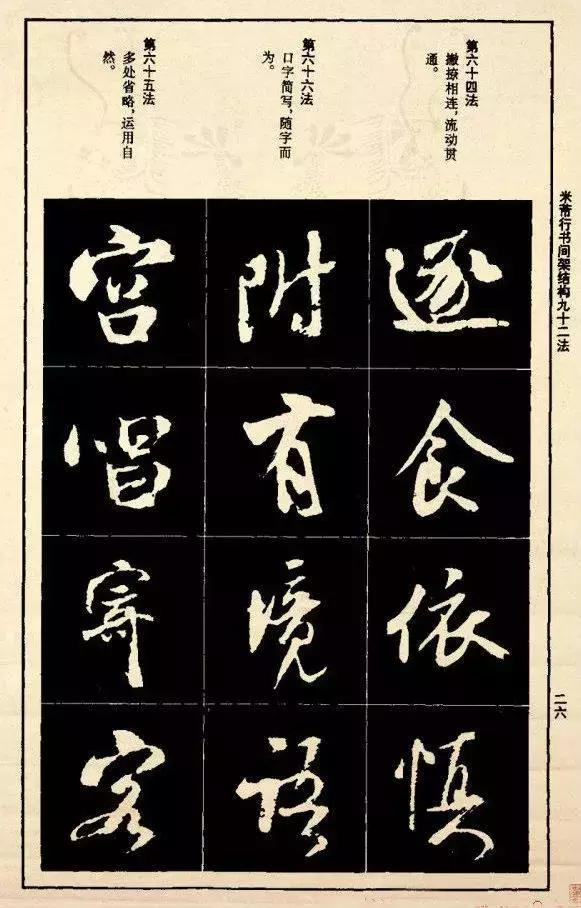 米芾行书间架结构九十二法
二六
第六十四法
撇捺相连，流动贯
通。
食
依
慎
第六十六法
口字简写，随字而
为。
附
有
境
語
第六十五法
多处省略，运用自
然。
宫
唱
寄
客